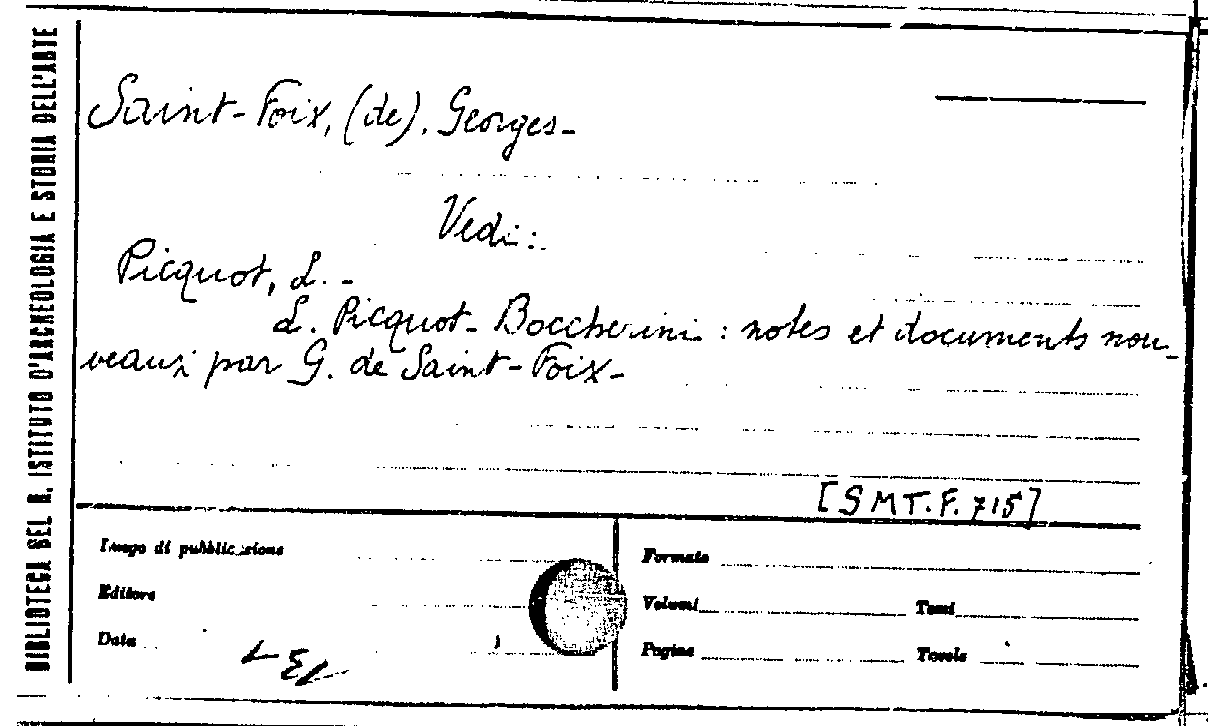 BIBLIOTECA DEL R. ISTITUTO D'ARCHEOLOGIA E STORIA DELL'ARTE
Saint-Foix, (de). Georges-
Vedi:
Picquot, L. -
L. Picquot- Boccherini : notes et documents nou-
veaux par G. de Saint-Foix-
[SMT.F.715]
Luogo di pubblicazione
Editore
Data
Formato
Volumi Tomi
Pagine Tavole